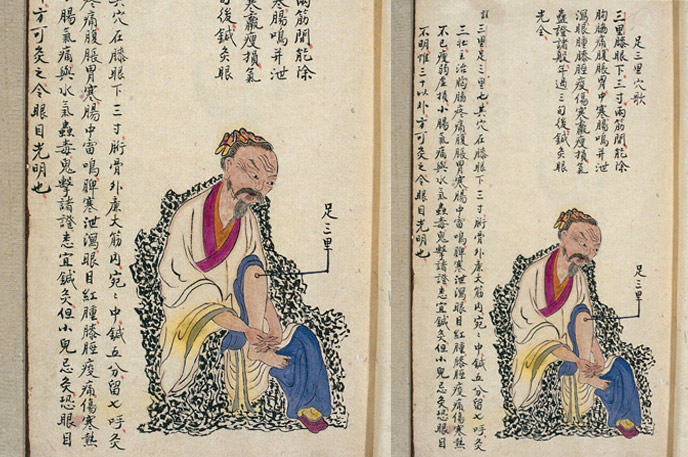 兩筋間能除
寒腸鳴并泄
寒羸瘦損氣
旬後鍼灸眼
穴在膝眼下三寸䯒骨外廉大筋内宛〻中鍼五分留七呼灸
疼痛腹脹胃寒腸中雷鳴脾寒泄瀉眼目紅腫膝脛痠痛傷寒熱
腸氣痛與水氣蠱毒鬼擊諸證悉宜鍼灸但小兒忌灸恐眼目
方可灸之令眼目光明也
足三里
足三里穴歌
三里膝眼下三寸兩筋間能除
胸膈痛腹脹胃中寒腸鳴并泄
瀉眼腫膝脛痠傷寒羸瘦損氣
蠱證諸般年過三旬後鍼灸眼
光全
三里足三里也其穴在膝眼下三寸䯒骨外廉大筋内宛〻中鍼五分留七呼灸
三壯主治胸膈疼痛腹脹胃寒腸中雷鳴脾寒泄瀉眼目紅腫膝脛痠痛傷寒熱
不已瘦弱虛損小腸氣痛與水氣蠱毒鬼擊諸證悉宜鍼灸但小兒忌灸恐眼目
不明惟三十以外方可灸之令眼目光明也
足三里